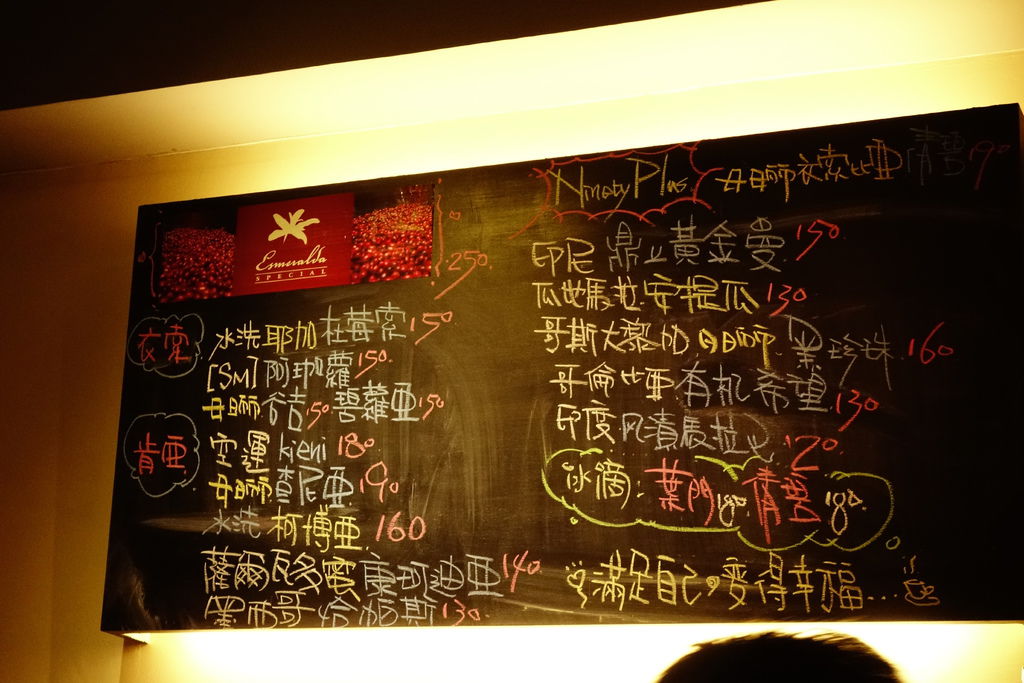 Esmeralda
SPECIAL
250
衣索
水洗 耶加 杜莓索 150
[SM] 阿珈蘿 150
日曬 谷吉 150 碧蘿亞 150
肯亞
空運 kieni 180
日曬 查尼亞 190
水洗 柯博亞 160
薩爾瓦多 蜜 康珂迪亞 140
墨西哥 恰帕斯 130
Ninety Plus 日曬 衣索比亞 190
印尼 鼎上黃金曼 150
瓜地馬拉 安提瓜 130
哥斯大黎加 日曬 黑珍珠 160
哥倫比亞 有机希望 130
印度 风漬馬拉巴 120
冰滴. 葉門 180 180
滿足自己, 變得幸福...